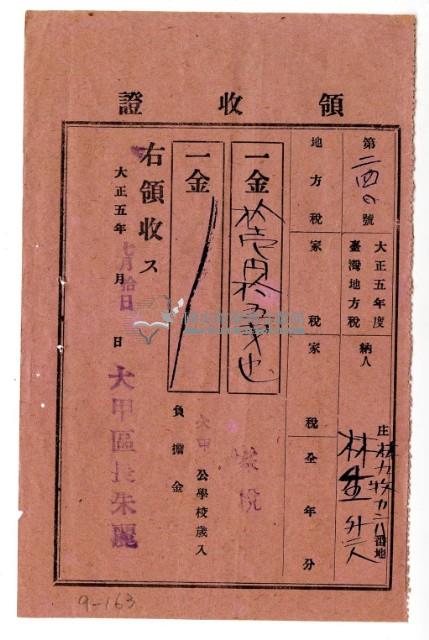 領收證
第二四〇號
大正五年度
臺灣地方稅
納人
庄
番地
林
外二人
地方稅家稅家稅全年分
一金 拾壱円拾五戋也
一金
大甲
公學校歲入
負擔金
右領收ス
大正五年七月拾日
大甲區長朱麗
9-163